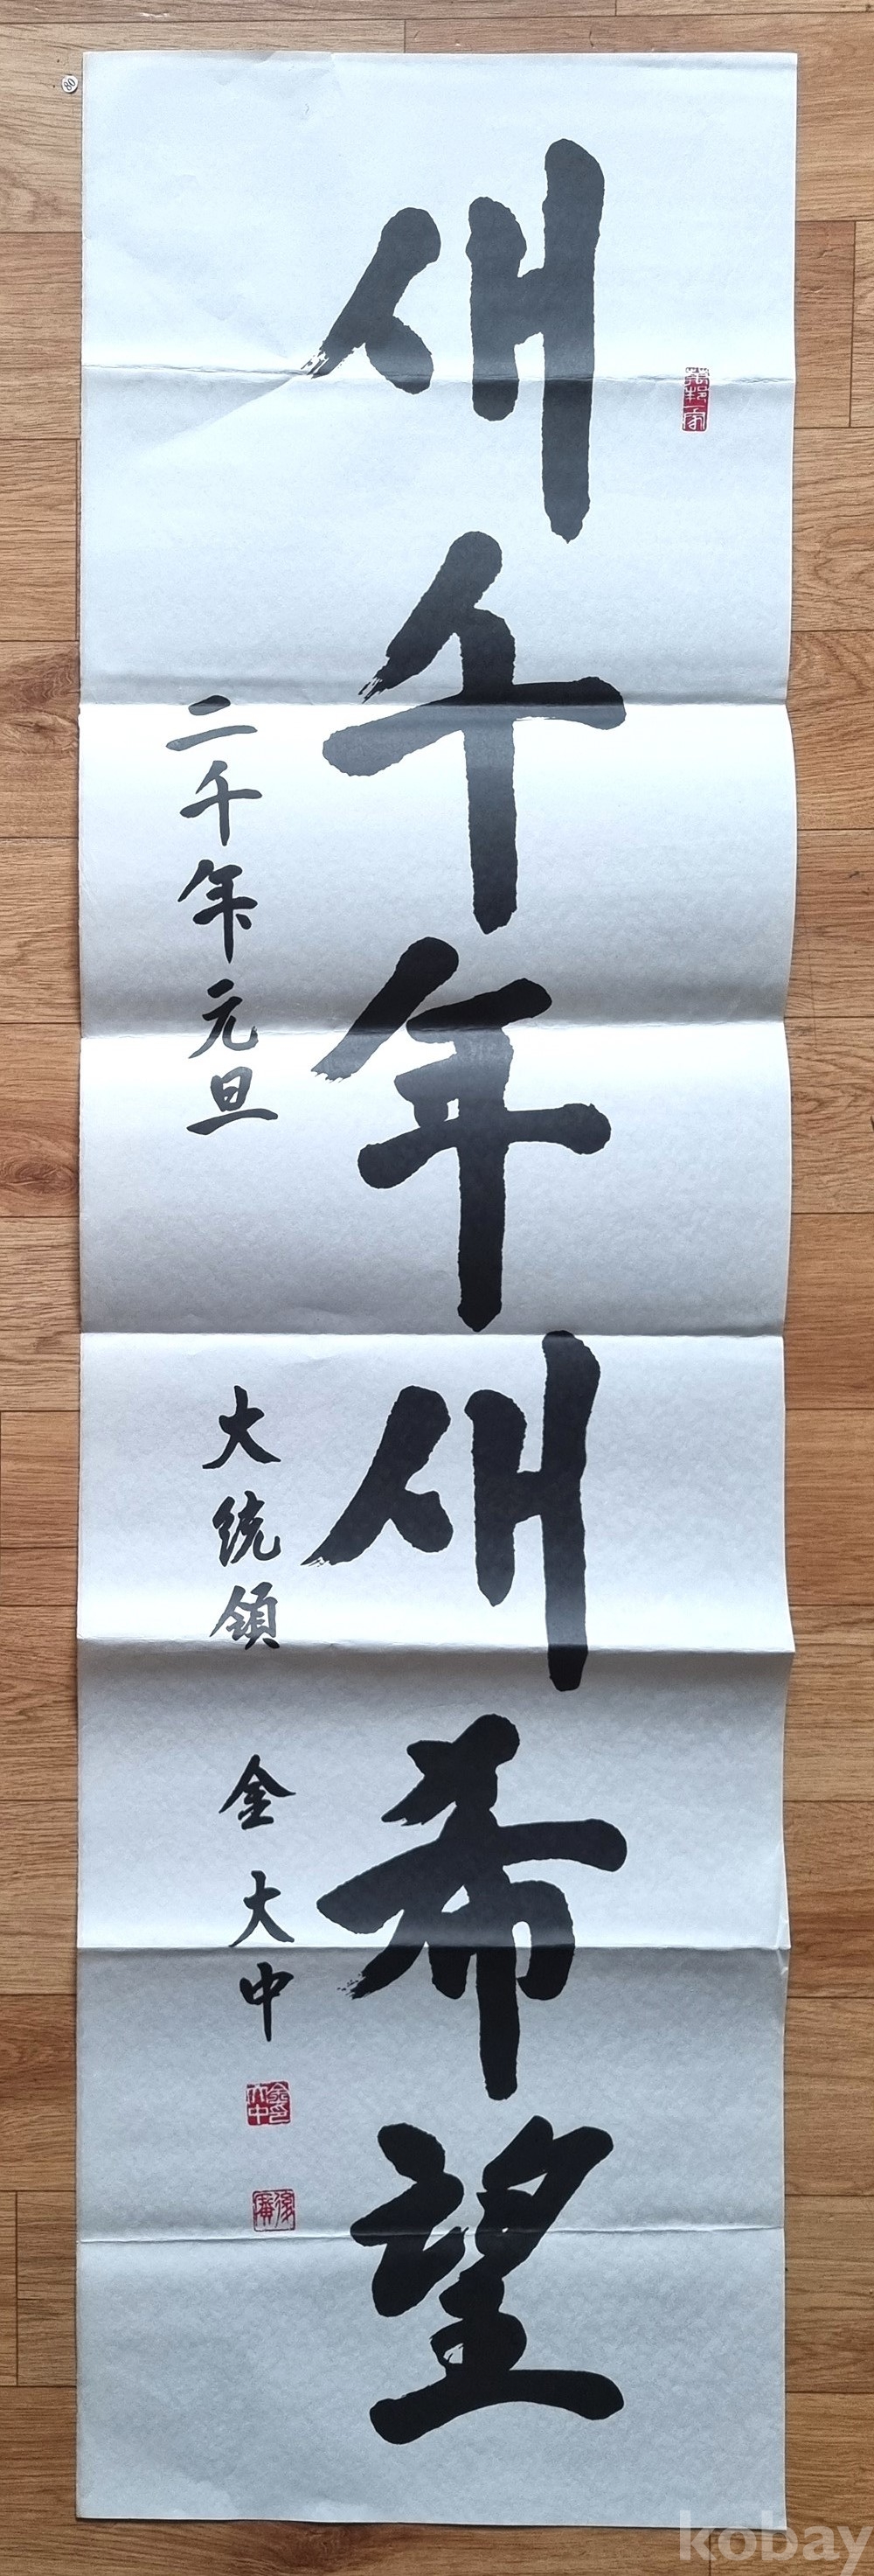 새千年새希望
二千年元旦
大統領 金大中
金大中印
後廣
kobay